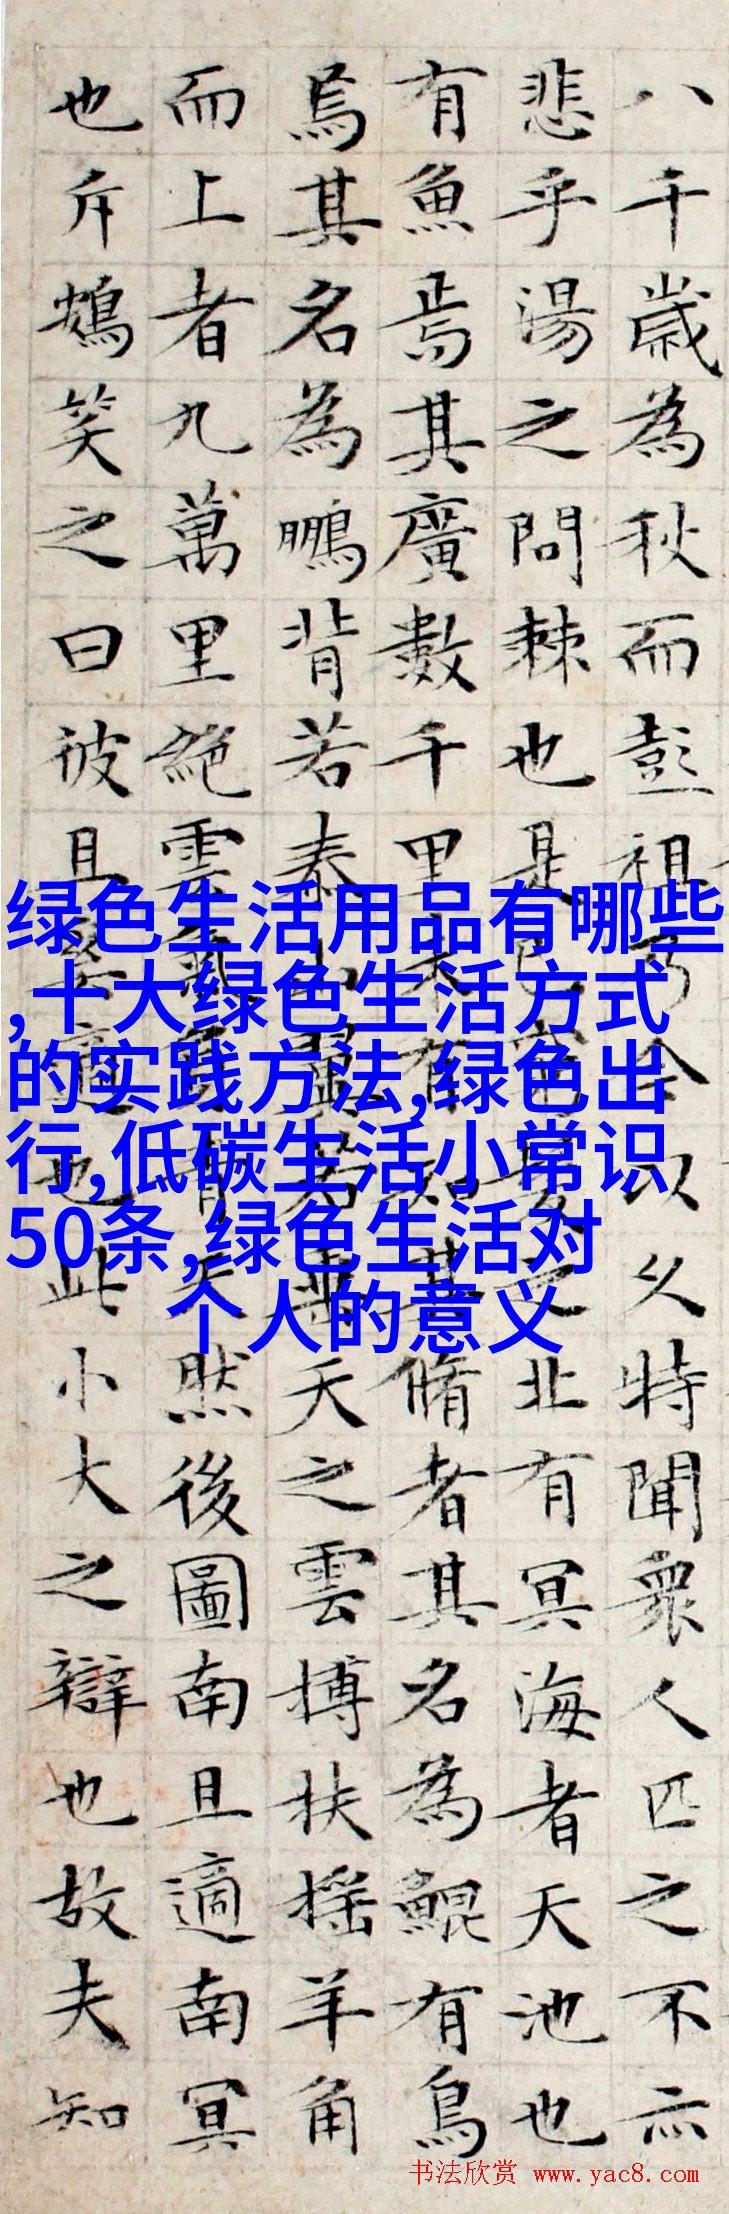 八千歲為秋而彭祖乃今以久特聞衆人匹之不亦
悲乎湯之問棘也是已窮髮之北有冥海者天池也
有魚焉其廣數千里未有知其脩者其名為鯤有鳥
焉其名為鵬背若泰山翼若垂天之雲搏扶搖羊角
而上者九萬里絕雲氣負青天然後圖南且適南冥
也斥鴳笑之曰彼且奚適也此小大之辯也故夫知
绿色生活用品有哪些
,十大绿色生活方式
的实践方法,绿色出
行,低碳生活小常识
50条,绿色生活对
个人的意义
书法欣赏 www.yac8.com